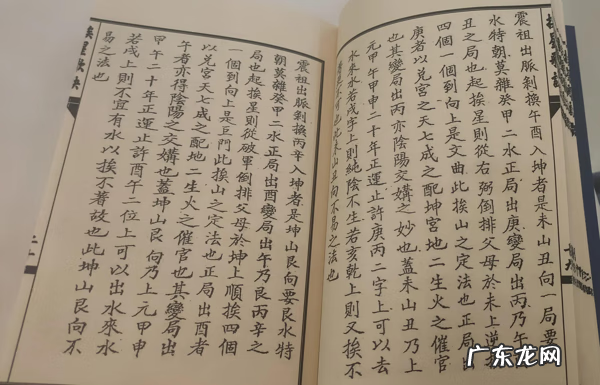 震祖出脈剝換午酉入坤者是未山丑向一局要
水特朝莫雜癸甲二水正局出庚變局出丙乃午
丑之局也起挨星則從右弼倒排父母於未上逆挨
四個一個到向上是文曲此挨山之定法也正局出
庚者以兑宮天七成之配坤宮地二生火之催官
也其變局出丙亦陰陽交媾之妙也蓋未山丑乃上
元甲午甲申二十年正運止許庚丙二字上可以去
水來水若戌字上則純陰不生若亥乾上則又挨不
著不可也此未山丑向不易之法也
震祖出脈剝換丙辛入坤者是坤山艮向要艮水特
朝莫雜癸甲二水正局出酉變局出午乃艮丙辛之
局也起挨星則從破軍倒排父母於坤上順挨四個
一個到向上是巨門此挨山之定法也正局出酉者
以兑宮天七成之配地二生火之催官也其變局出
午者亦得陰陽之交媾也蓋坤山艮向乃上元甲申
甲午二十年正運止許酉午二位上可以出水來水
若戌上則不宜有水以挨不著故也此坤山艮向不
易之法也
挨星歌訣
广东龙网